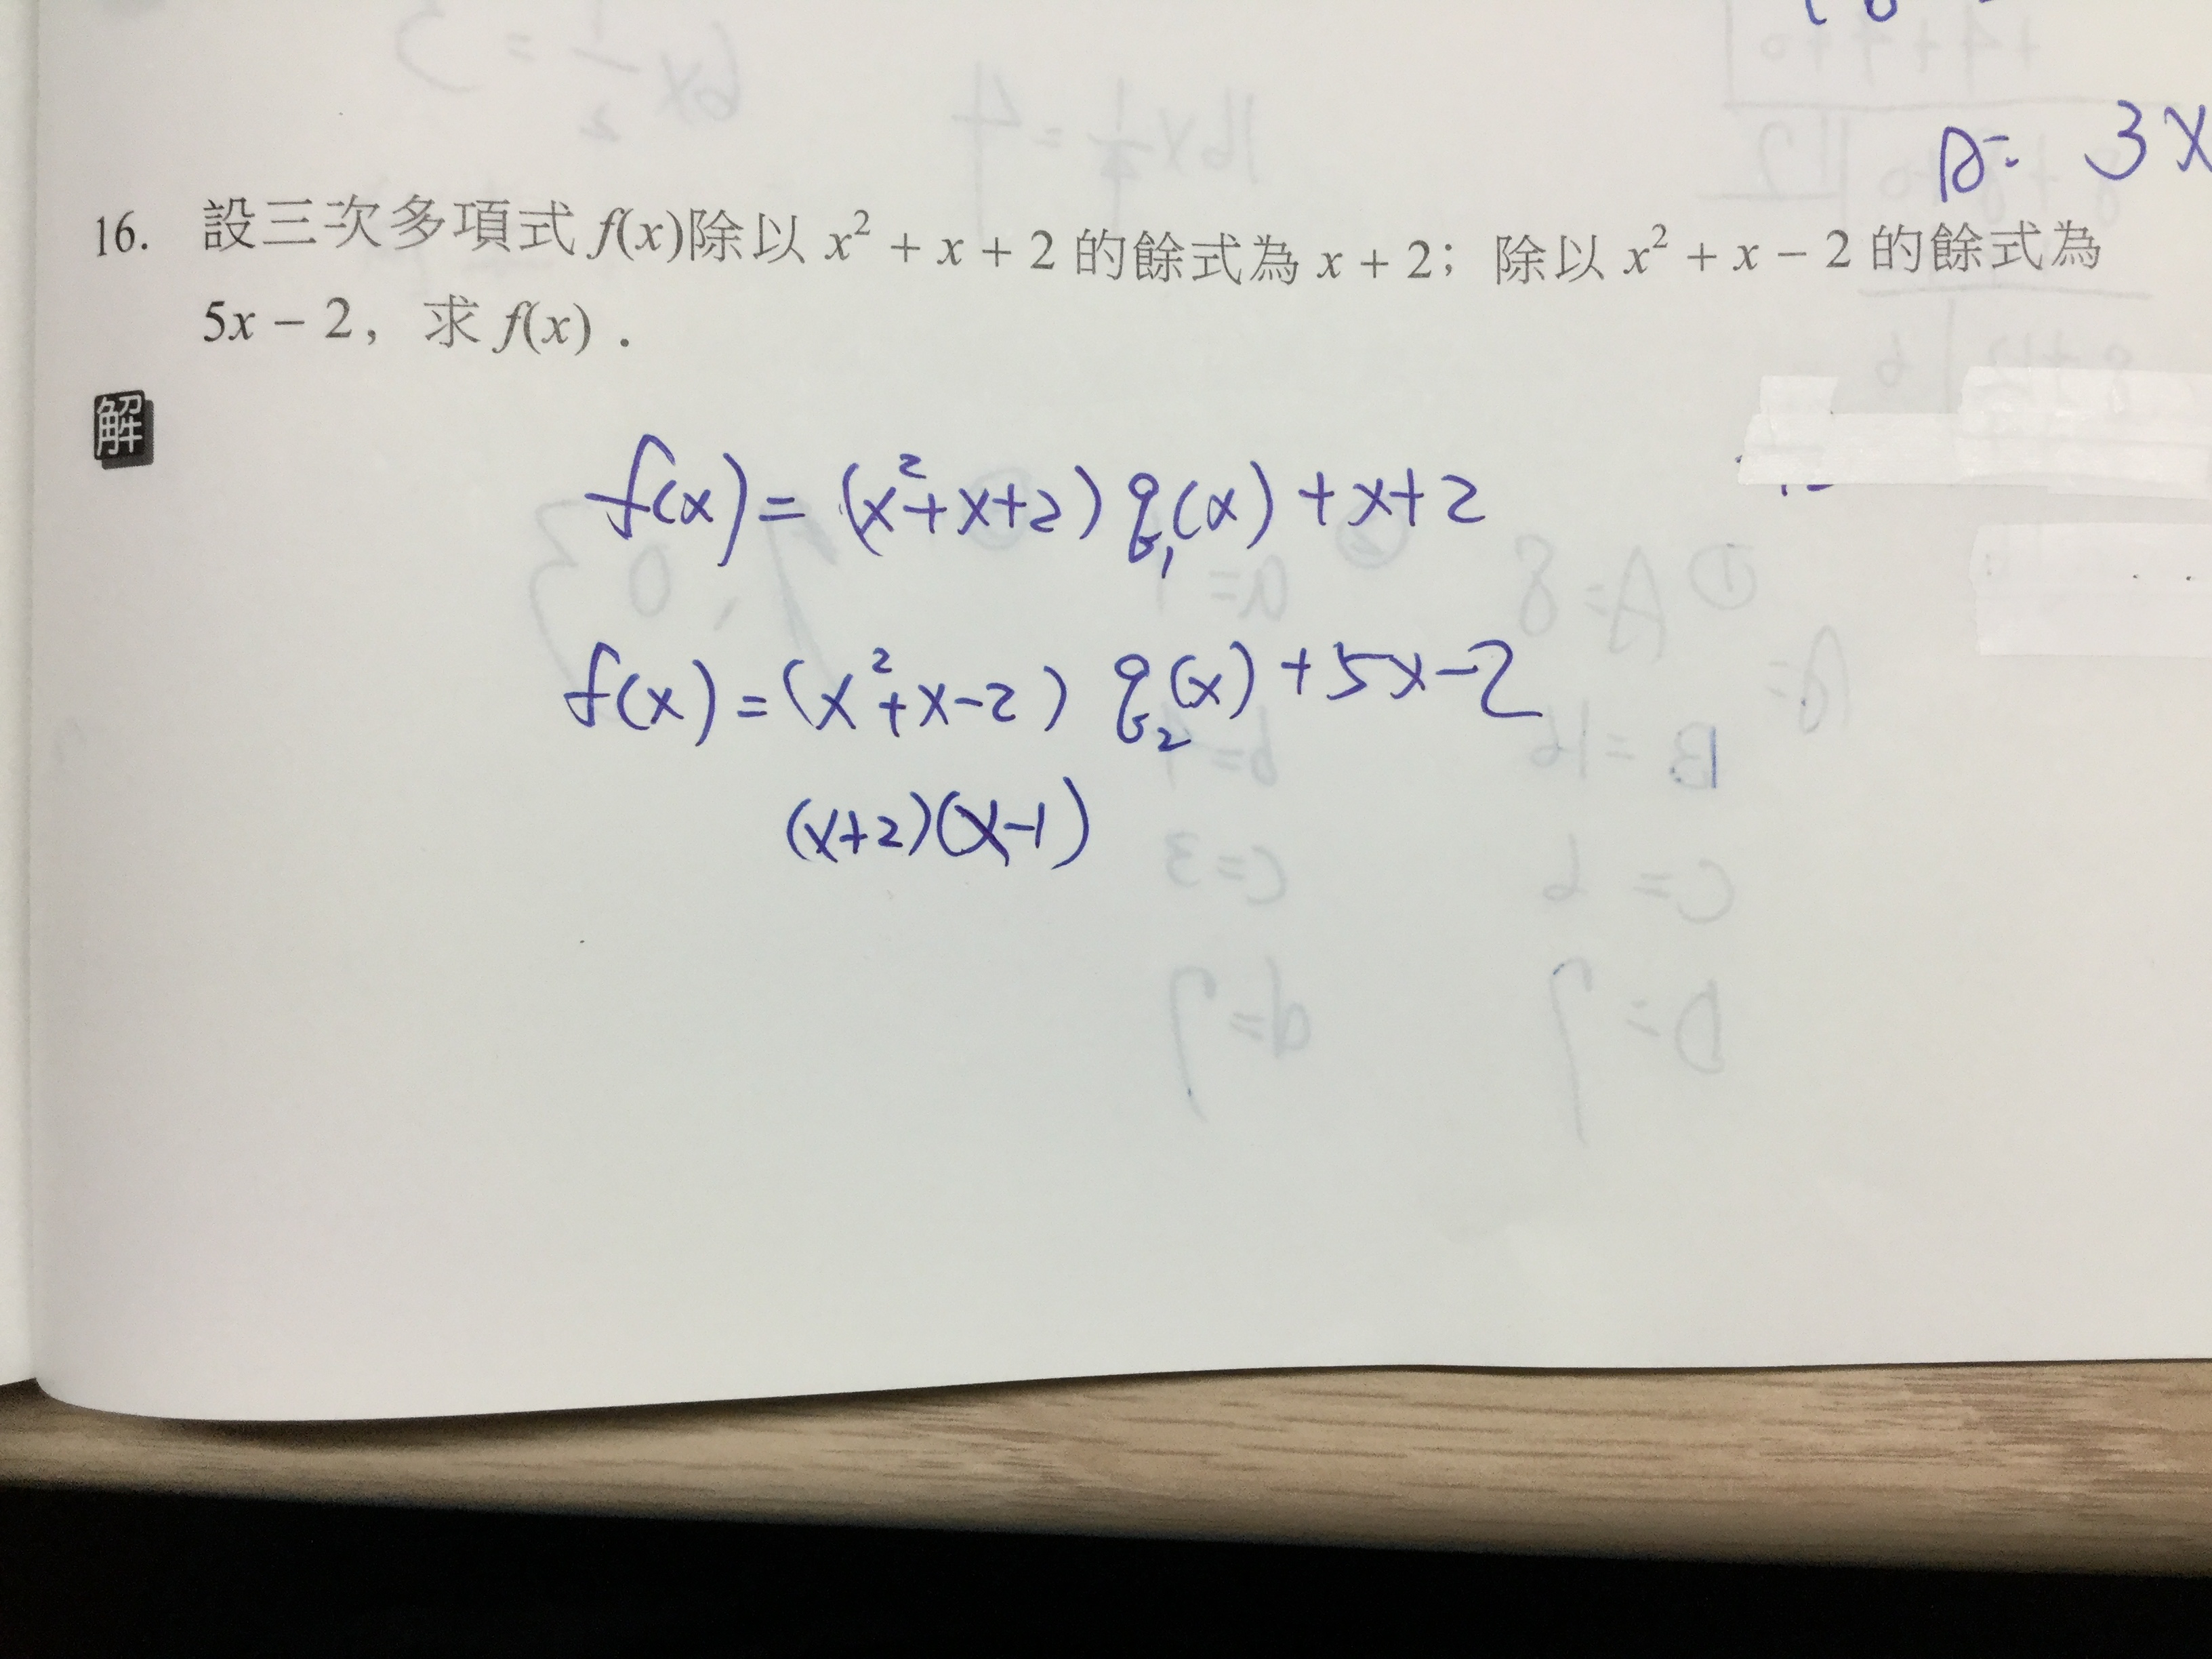 A: 3x
16. 設三次多項式 f(x)除以 x² + x + 2 的餘式為 x + 2；除以 x² + x − 2 的餘式為
5x − 2，求 f(x)．
解
f(x) = (x²+x+2) q₁(x) + x+2
f(x) = (x²+x-2) q₂(x) + 5x-2
(x+2)(x-1)